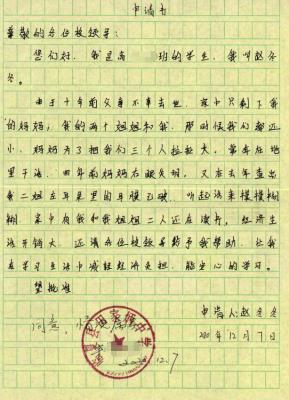 申请书
尊敬的各位校领导：
您们好，我是高 班的学生，我叫赵冬
冬。
由于十年前父亲不幸去世，家中只剩下我
的妈妈，我的两个姐姐和我，那时候我们都还
小，妈妈为了把我们三个人拉扯大，常年在地
里干活，四年前妈妈右眼失明，又在去年查出
我二姐左耳朵里的耳膜已破，听起话来模模糊
糊，家中有我和我姐姐二人还在读书，经济生
活开销大，还请各位校领导给予我帮助，让我
在学习生活中减轻经济负担，能安心的学习。
望批准
申请人：赵冬冬
年12月7日
同意，
12.7